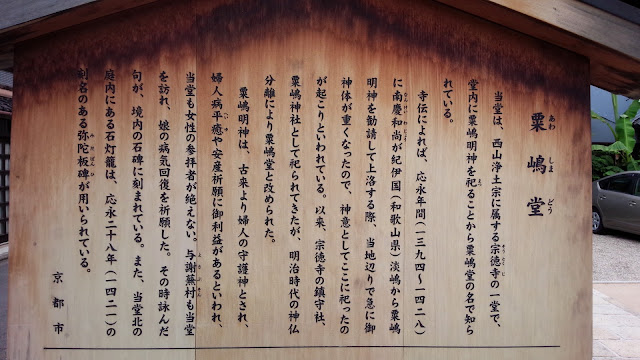 粟嶋堂
あわ しま どう
当堂は、西山浄土宗に属する宗徳寺の一堂で、
堂内に粟嶋明神を祀ることから粟嶋堂の名で知ら
れている。
寺伝によれば、応永年間（一三九四〜一四二八）
に南慶和尚が紀伊国（和歌山県）淡嶋から粟嶋
明神を勧請して上洛する際、当地辺りで急に御
神体が重くなったので、神意としてここに祀ったの
が起こりといわれている。以来、宗徳寺の鎮守社、
粟嶋神社として祀られてきたが、明治時代の神仏
分離により粟嶋堂と改められた。
粟嶋明神は、古来より婦人の守護神とされ、
婦人病平癒や安産祈願に御利益があるといわれ、
当堂も女性の参拝者が絶えない。与謝蕪村も当堂
を訪れ、娘の病気回復を祈願した。その時詠んだ
句が、境内の石碑に刻まれている。また、当堂北の
庭内にある石灯籠は、応永二十八年（一四二一）の
刻名のある弥陀板碑が用いられている。
京都市